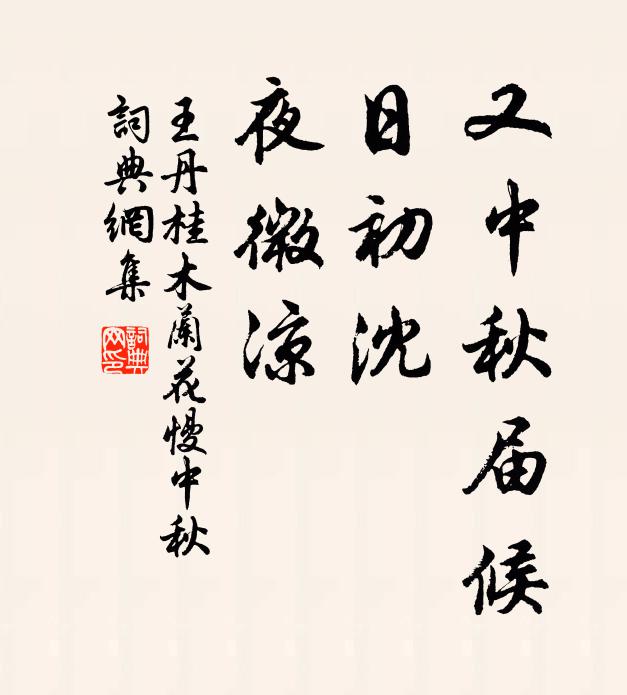 又中秋届候
日初沈
夜微凉
王丹桂木蘭花慢中秋
詞典網集
詞典網印